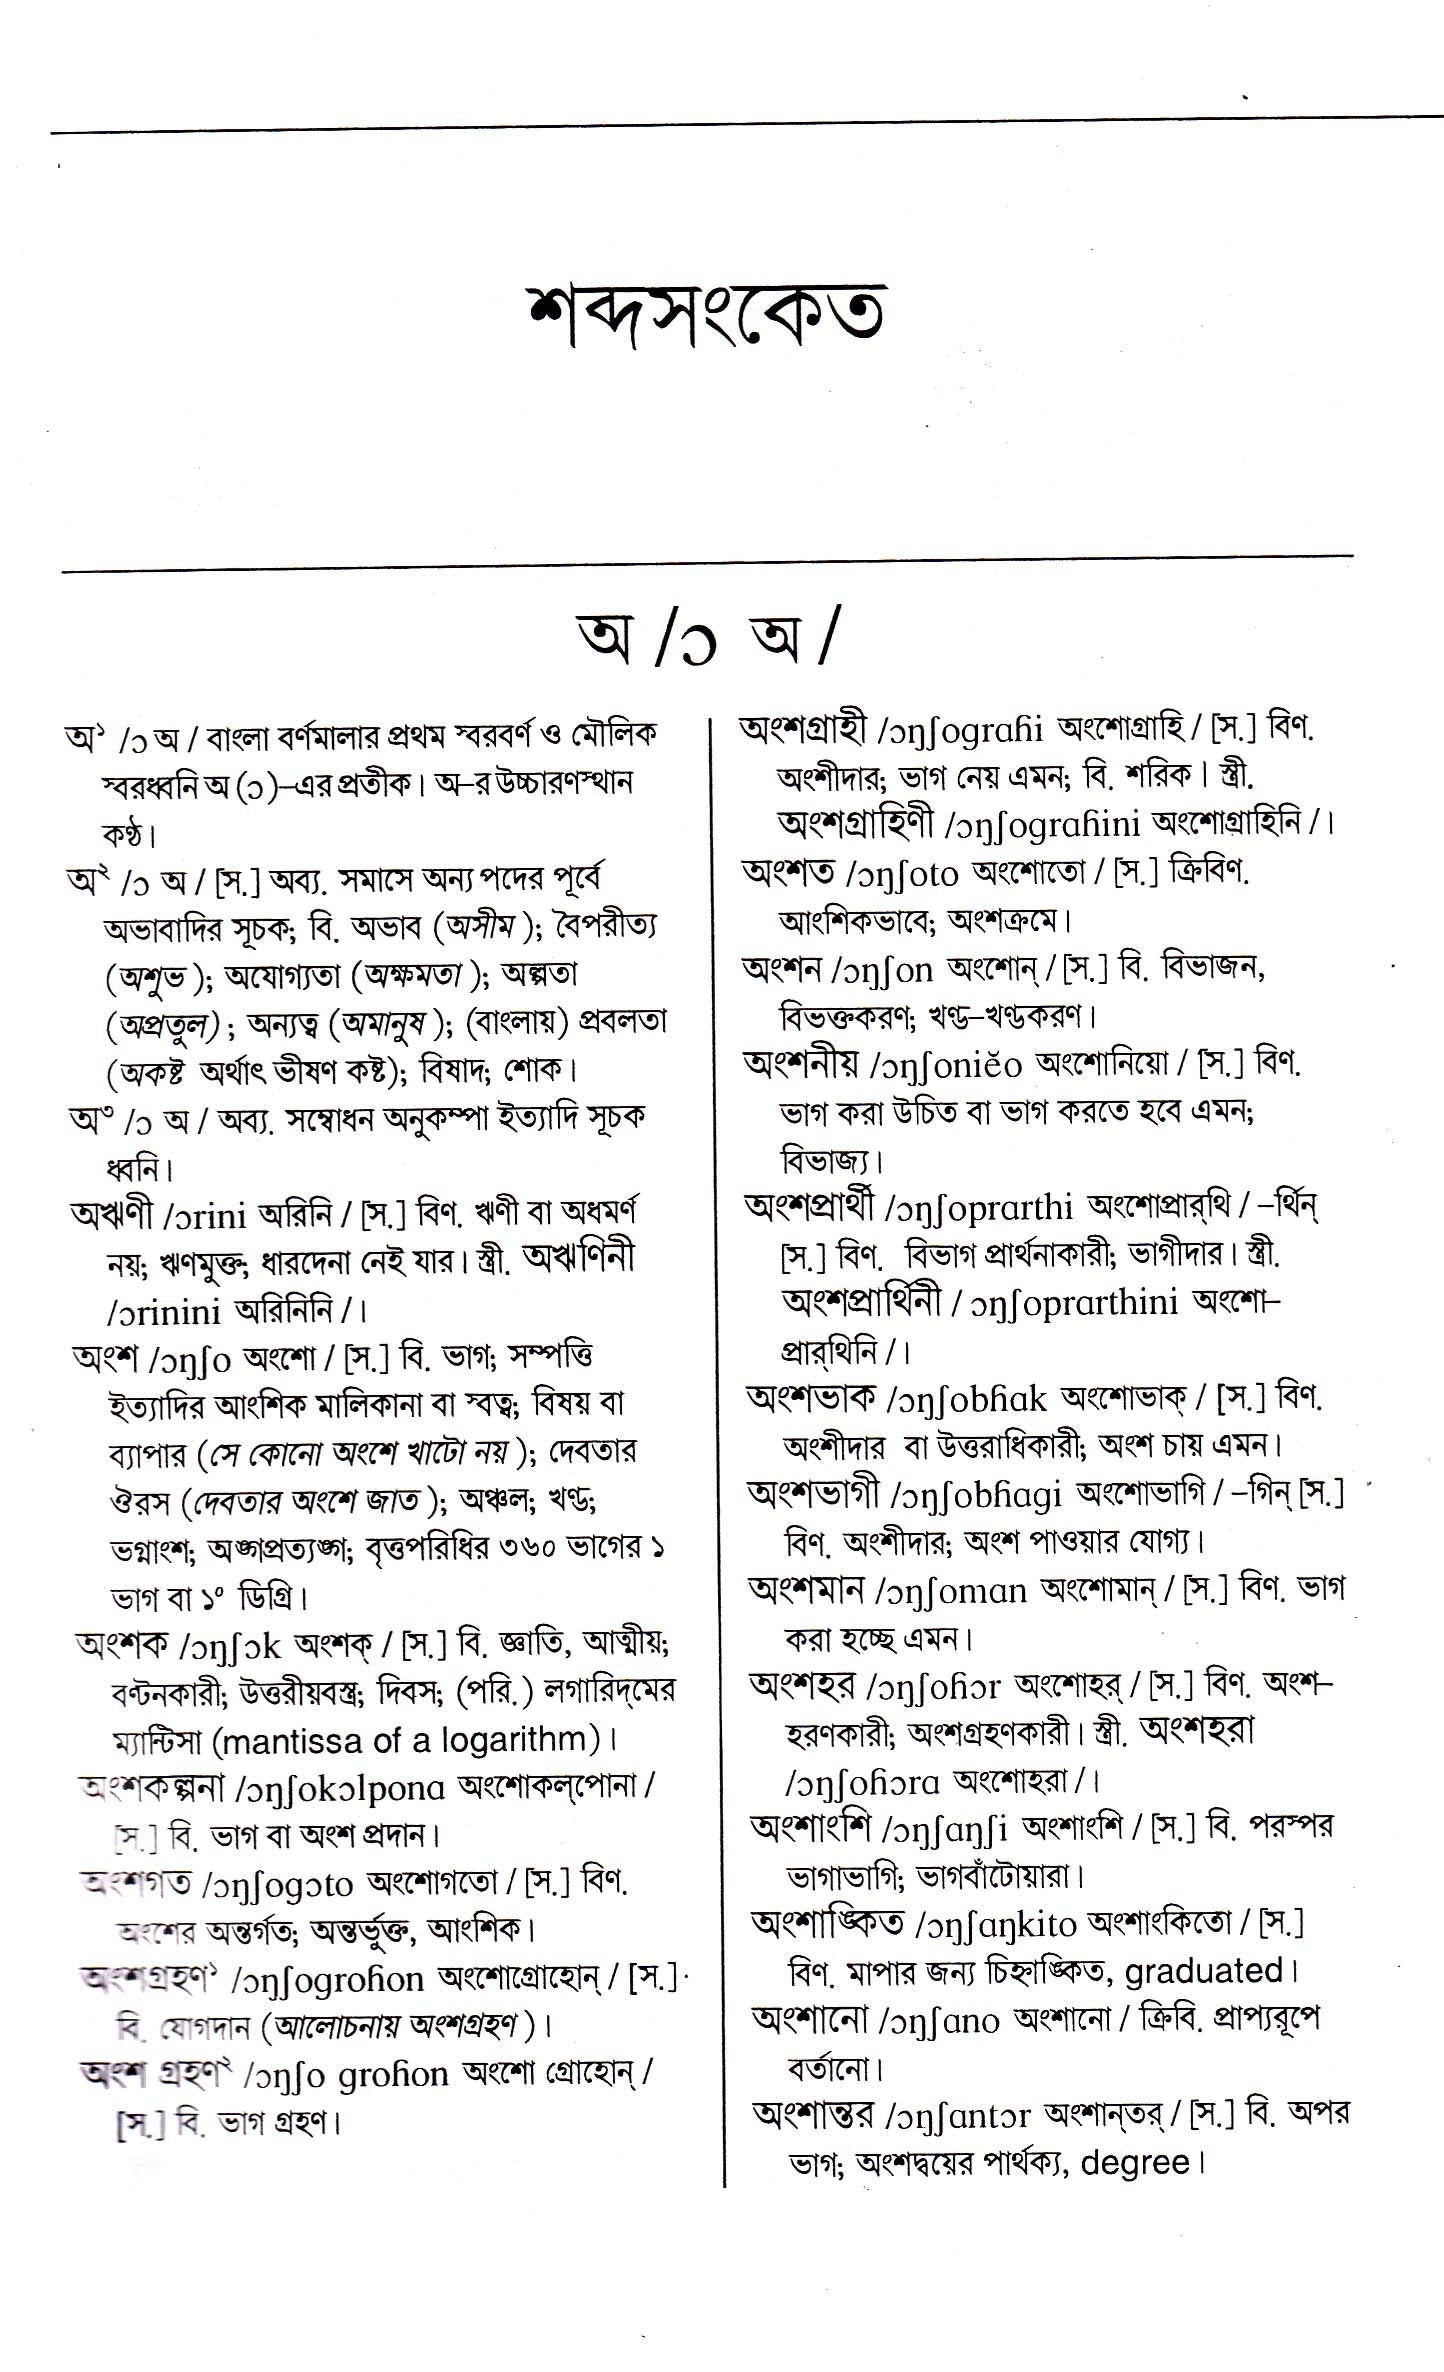 শব্দসংকেত
অ /ɔ অ /
অ১ /ɔ অ / বাংলা বর্ণমালার প্রথম স্বরবর্ণ ও মৌলিক
স্বরধ্বনি অ (ɔ)–এর প্রতীক। অ–র উচ্চারণস্থান
কণ্ঠ।
অ২ /ɔ অ / [স.] অব্য. সমাসে অন্য পদের পূর্বে
অভাবাদির সূচক; বি. অভাব (অসীম ); বৈপরীত্য
(অশুভ ); অযোগ্যতা (অক্ষমতা ); অল্পতা
(অপ্রতুল) ; অন্যত্ব (অমানুষ ); (বাংলায়) প্রবলতা
(অকষ্ট অর্থাৎ ভীষণ কষ্ট); বিষাদ; শোক।
অ৩ /ɔ অ / অব্য. সম্বোধন অনুকম্পা ইত্যাদি সূচক
ধ্বনি।
অঋণী /ɔrini অরিনি / [স.] বিণ. ঋণী বা অধমর্ণ
নয়; ঋণমুক্ত; ধারদেনা নেই যার। স্ত্রী. অঋণিনী
/ɔrinini অরিনিনি /।
অংশ /ɔŋʃo অংশো / [স.] বি. ভাগ; সম্পত্তি
ইত্যাদির আংশিক মালিকানা বা স্বত্ব; বিষয় বা
ব্যাপার (সে কোনো অংশে খাটো নয় ); দেবতার
ঔরস (দেবতার অংশে জাত ); অঞ্চল; খণ্ড;
ভগ্নাংশ; অঙ্গপ্রত্যঙ্গ; বৃত্তপরিধির ৩৬০ ভাগের ১
ভাগ বা ১° ডিগ্রি।
অংশক /ɔŋʃɔk অংশক্ / [স.] বি. জ্ঞাতি, আত্মীয়;
বণ্টনকারী; উত্তরীয়বস্ত্র; দিবস; (পরি.) লগারিদ্‌মের
ম্যান্টিসা (mantissa of a logarithm)।
অংশকল্পনা /ɔŋʃokɔlpona অংশোকল্‌পোনা /
[স.] বি. ভাগ বা অংশ প্রদান।
অংশগত /ɔŋʃogɔto অংশোগতো / [স.] বিণ.
অংশের অন্তর্গত; অন্তর্ভুক্ত, আংশিক।
অংশগ্রহণ১ /ɔŋʃogroɦon অংশোগ্রোহোন্ / [স.]
বি. যোগদান (আলোচনায় অংশগ্রহণ )।
অংশ গ্রহণ২ /ɔŋʃo groɦon অংশো গ্রোহোন্ /
[স.] বি. ভাগ গ্রহণ।
অংশগ্রাহী /ɔŋʃograɦi অংশোগ্রাহি / [স.] বিণ.
অংশীদার; ভাগ নেয় এমন; বি. শরিক। স্ত্রী.
অংশগ্রাহিণী /ɔŋʃograɦini অংশোগ্রাহিনি /।
অংশত /ɔŋʃoto অংশোতো / [স.] ক্রিবিণ.
আংশিকভাবে; অংশক্রমে।
অংশন /ɔŋʃon অংশোন্ / [স.] বি. বিভাজন,
বিভক্তকরণ; খণ্ড–খণ্ডকরণ।
অংশনীয় /ɔŋʃoniĕo অংশোনিয়ো / [স.] বিণ.
ভাগ করা উচিত বা ভাগ করতে হবে এমন;
বিভাজ্য।
অংশপ্রার্থী /ɔŋʃoprarthi অংশোপ্রার্‌থি / –র্থিন্
[স.] বিণ. বিভাগ প্রার্থনাকারী; ভাগীদার। স্ত্রী.
অংশপ্রার্থিনী / ɔŋʃoprarthini অংশো–
প্রার্‌থিনি /।
অংশভাক /ɔŋʃobɦak অংশোভাক্ / [স.] বিণ.
অংশীদার বা উত্তরাধিকারী; অংশ চায় এমন।
অংশভাগী /ɔŋʃobɦagi অংশোভাগি / –গিন্ [স.]
বিণ. অংশীদার; অংশ পাওয়ার যোগ্য।
অংশমান /ɔŋʃoman অংশোমান্ / [স.] বিণ. ভাগ
করা হচ্ছে এমন।
অংশহর /ɔŋʃoɦɔr অংশোহর্ / [স.] বিণ. অংশ–
হরণকারী; অংশগ্রহণকারী। স্ত্রী. অংশহরা
/ɔŋʃoɦɔra অংশোহরা /।
অংশাংশি /ɔŋʃaŋʃi অংশাংশি / [স.] বি. পরস্পর
ভাগাভাগি; ভাগবাঁটোয়ারা।
অংশাঙ্কিত /ɔŋʃaŋkito অংশাংকিতো / [স.]
বিণ. মাপার জন্য চিহ্নাঙ্কিত, graduated।
অংশানো /ɔŋʃano অংশানো / ক্রিবি. প্রাপ্যরূপে
বর্তানো।
অংশান্তর /ɔŋʃantɔr অংশান্‌তর্ / [স.] বি. অপর
ভাগ; অংশদ্বয়ের পার্থক্য, degree।